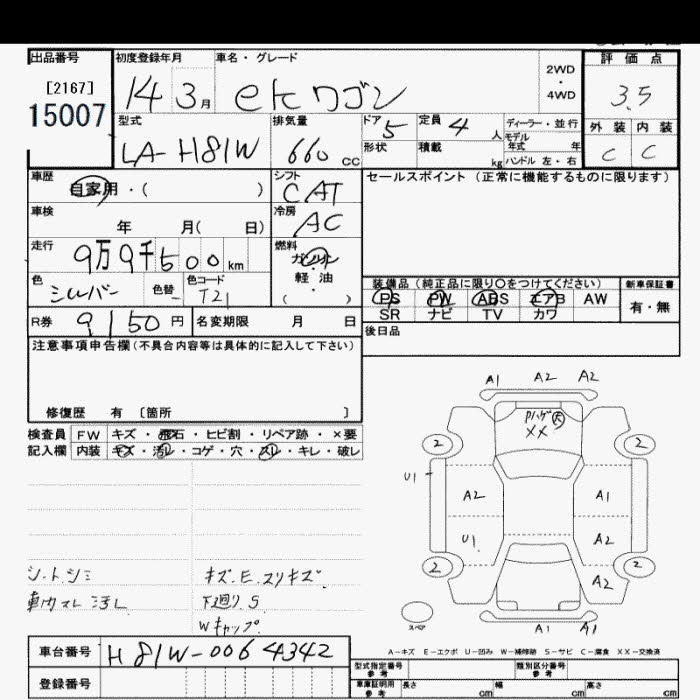 出品番号 初度登録年月 車名・グレード 評価点
[2167] 14 3月 ekワゴン 2WD・4WD 3.5
15007
型式 排気量 ドア 5 定員 4人 ディーラー・並行 外装 内装
LA-H81W 660 cc 形状 積載 kg モデル年式 年 C C
ハンドル 左・右
車歴 シフト セールスポイント (正常に機能するものに限ります)
自家用・( ) CAT
車検 冷房
年 月( 日) AC
走行 燃料
9万9千500km ガソリン・軽油
( )
色 色替 色コード 装備品 (純正品に限り○をつけてください) 新車保証書
シルバー T21 PS PW ABS エアB AW 有・無
SR ナビ TV カワ
R券 9150円 名変期限 月 日 後日品
注意事項申告欄 (不具合内容等は具体的に記入して下さい)
修復歴 有 〔箇所 〕
検査員 FW キズ・飛石・ヒビ割・リペア跡・×要
記入欄 内装 キズ・汚レ・コゲ・穴・スレ・キレ・破レ
A1 A2 A2
Pハゲ大
XX
2 2
U1
A2 A1
U1 A2
2 2
A2
スペア
A1 A1
シートシミ キズ.E.スリキズ
車内スレ汚レ 下廻りS
Wキャップ
A-キズ E-エクボ U-凹み W-補修跡 S-サビ C-腐食 XX-交換済
車台番号 H81W-0064342
登録番号
型式指定番号 参考 類別区分番号 参考
車庫証明用 参考 長さ cm 幅 cm 高さ cm